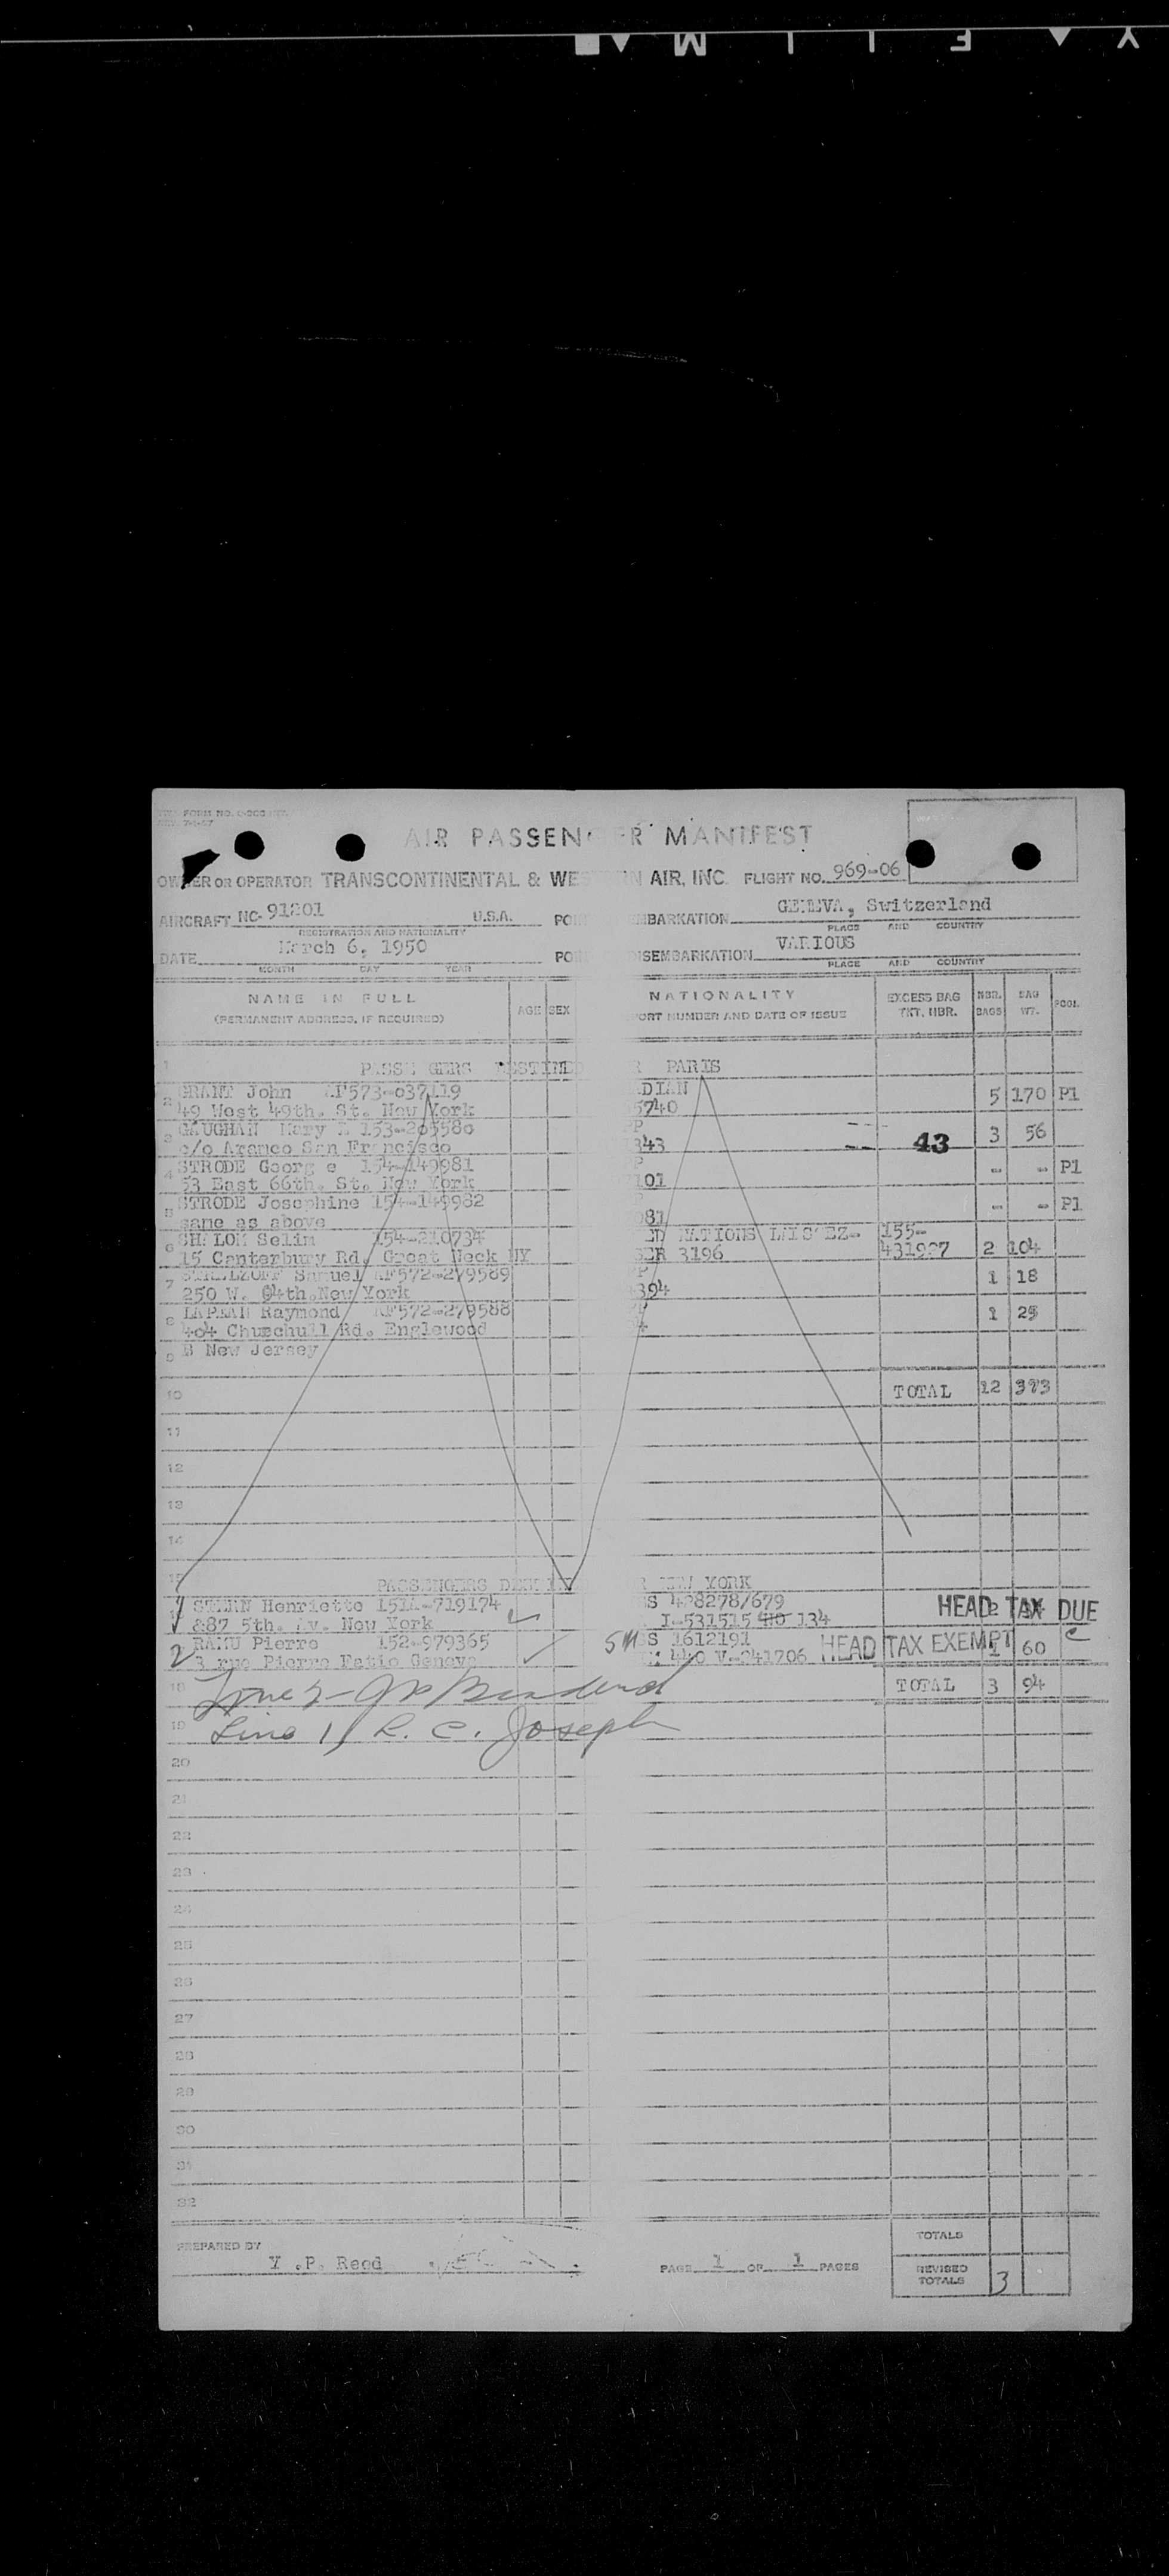 Y ▲ F I L M ▲
TWA FORM NO.
AIR PASSENGER MANIFEST
OWNER OR OPERATOR TRANSCONTINENTAL & WESTERN AIR, INC. FLIGHT NO. 969-06
AIRCRAFT NC-91201 U.S.A. POI MBARKATION GENEVA, Switzerland
REGISTRATION AND NATIONALITY PLACE AND COUNTRY
DATE March 6, 1950 POI ISEMBARKATION VARIOUS
MONTH DAY YEAR PLACE AND COUNTRY
NAME IN FULL AGE SEX NATIONALITY EXCESS BAG NBR. BAG POOL
(PERMANENT ADDRESS, IF REQUIRED) PORT NUMBER AND DATE OF ISSUE TKT. NBR. BAGS WT.
1 PASSENGERS DESTINED R PARIS
2 GRANT John AF573-037119 DIAN 5 170 P1
49 West 49th. St. New York 5740
3 GAUGHAN Mary 153- P 43 3 56
c/o Aramco San Francisco 343
4 STRODE George 154-149981 P - - P1
53 East 66th. St. New York 101
5 STRODE Josephine 154-149982 - - P1
same as above 081
6 SHALOM Selim 154-210734 ED NATIONS LAISSEZ- 155-
15 Canterbury Rd. Great Neck NY SER 3196 431927 2 104
7 Samuel AF572-279589 P 1 18
250 W. 94th. New York 394
8 Raymond AF572-279588 P 1 25
404 Churchull Rd. Englewood 4
9 New Jersey
10 TOTAL 12 373
11
12
13
14
15 PASSENGERS R NEW YORK
1 STERN Henriette 151A-719174 S 428278/679 HEAD TAX DUE 2 34
887 5th. Av. New York I-531515 410 134
2 RAMU Pierre 152-979365 5M S 1612191 HEAD TAX EXEMPT 1 60 c
3 rue Pierre Fatio Geneva 440 V-241706
18 Line 2 - TOTAL 3 94
19 Line 1, R. C. Joseph
20
21
22
23
24
25
26
27
28
29
30
31
32
TOTALS
PREPARED BY Y .P. Reed PAGE 1 OF 1 PAGES
REVISED TOTALS 3